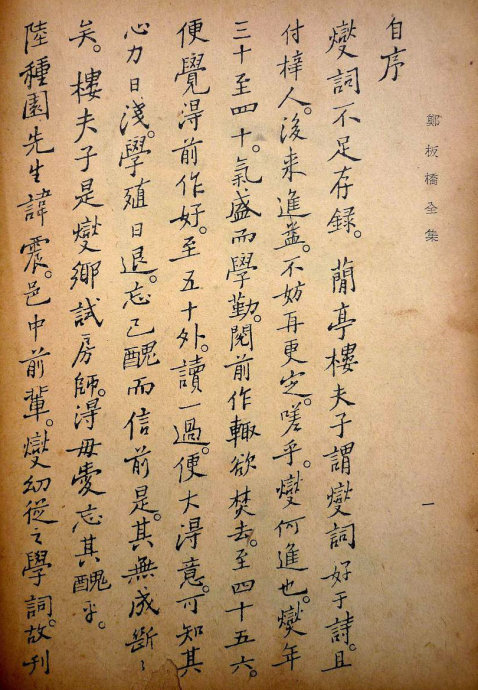 鄭板橋全集
一
自序
燮詞不足存録。蘭亭樓夫子謂燮詞好于詩。且
付梓人。後来進益。不妨再更定。嗟乎。燮何進也。燮年
三十至四十。氣盛而學勤。閱前作輒欲焚去。至四十五六。
便覺得前作好。至五十外。讀一過。便大得意。可知其
心力日淺。學殖日退。忘己醜而信前是。其無成斷〻
矣。樓夫子是燮鄉試房師。得毋愛忘其醜乎。
陸種園先生諱震。邑中前輩。燮幼從之學詞。故刊